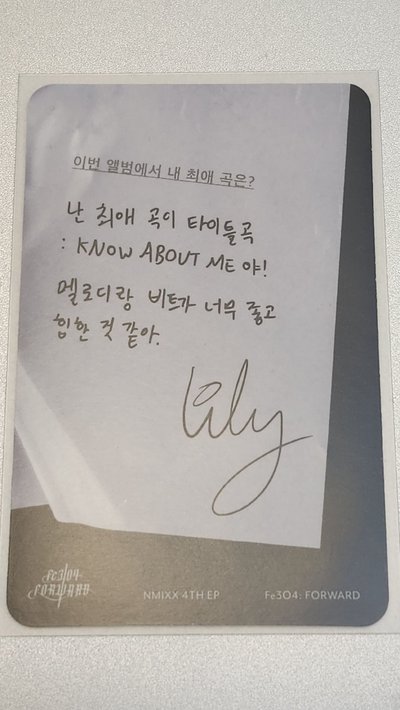 이번 앨범에서 내 최애 곡은?
난 최애 곡이 타이틀곡
: KNOW ABOUT ME 야!
멜로디랑 비트가 너무 좋고
힙한 것 같아.
Lily
Fe3O4
FORWARD
NMIXX 4TH EP
Fe3O4: FORWARD